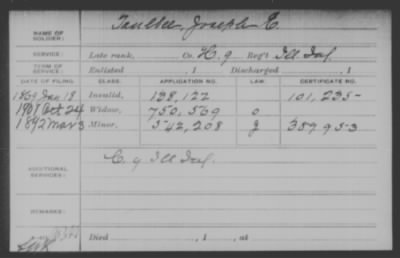 NAME OF SOLDIER: Joseph E.
SERVICE: Late rank, Co. H. 9 Reg't Ill Inf.
TERM OF SERVICE: Enlisted , 1 Discharged , 1
DATE OF FILING. CLASS. APPLICATION NO. LAW. CERTIFICATE NO.
1869 Jan 18 Invalid, 138,122 101,235-
1908 Oct 24 Widow, 750,569 o
1892 Mar 3 Minor, 542,208 g 357953
ADDITIONAL SERVICES: C. 9 Ill Inf.
REMARKS:
Died , 1 , at